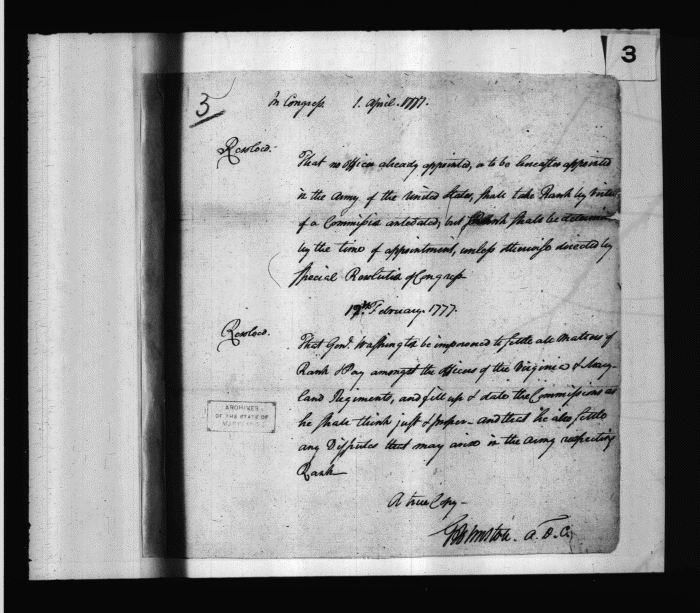 3
3
In Congress 1. April. 1777.
Resolved.
That no officer already appointed, or to be hereafter appointed
in the Army of the United States, shall take Rank by virtue
of a Commission antedated, but Rank shall be determined
by the time of appointment, unless otherwise directed by
special Resolution of Congress
12th February. 1777.
Resolved.
That Genl. Washington be impowered to settle all Matters of
Rank & Pay amongst the officers of the Virginia & Mary-
land Regiments, and fill up & date the Commissions as
he shall think just & proper – and that he also settle
any Disputes that may arise in the army respecting
Rank
ARCHIVES
OF THE STATE OF
MARYLAND
A true Copy –
Johnston. A. D. C.